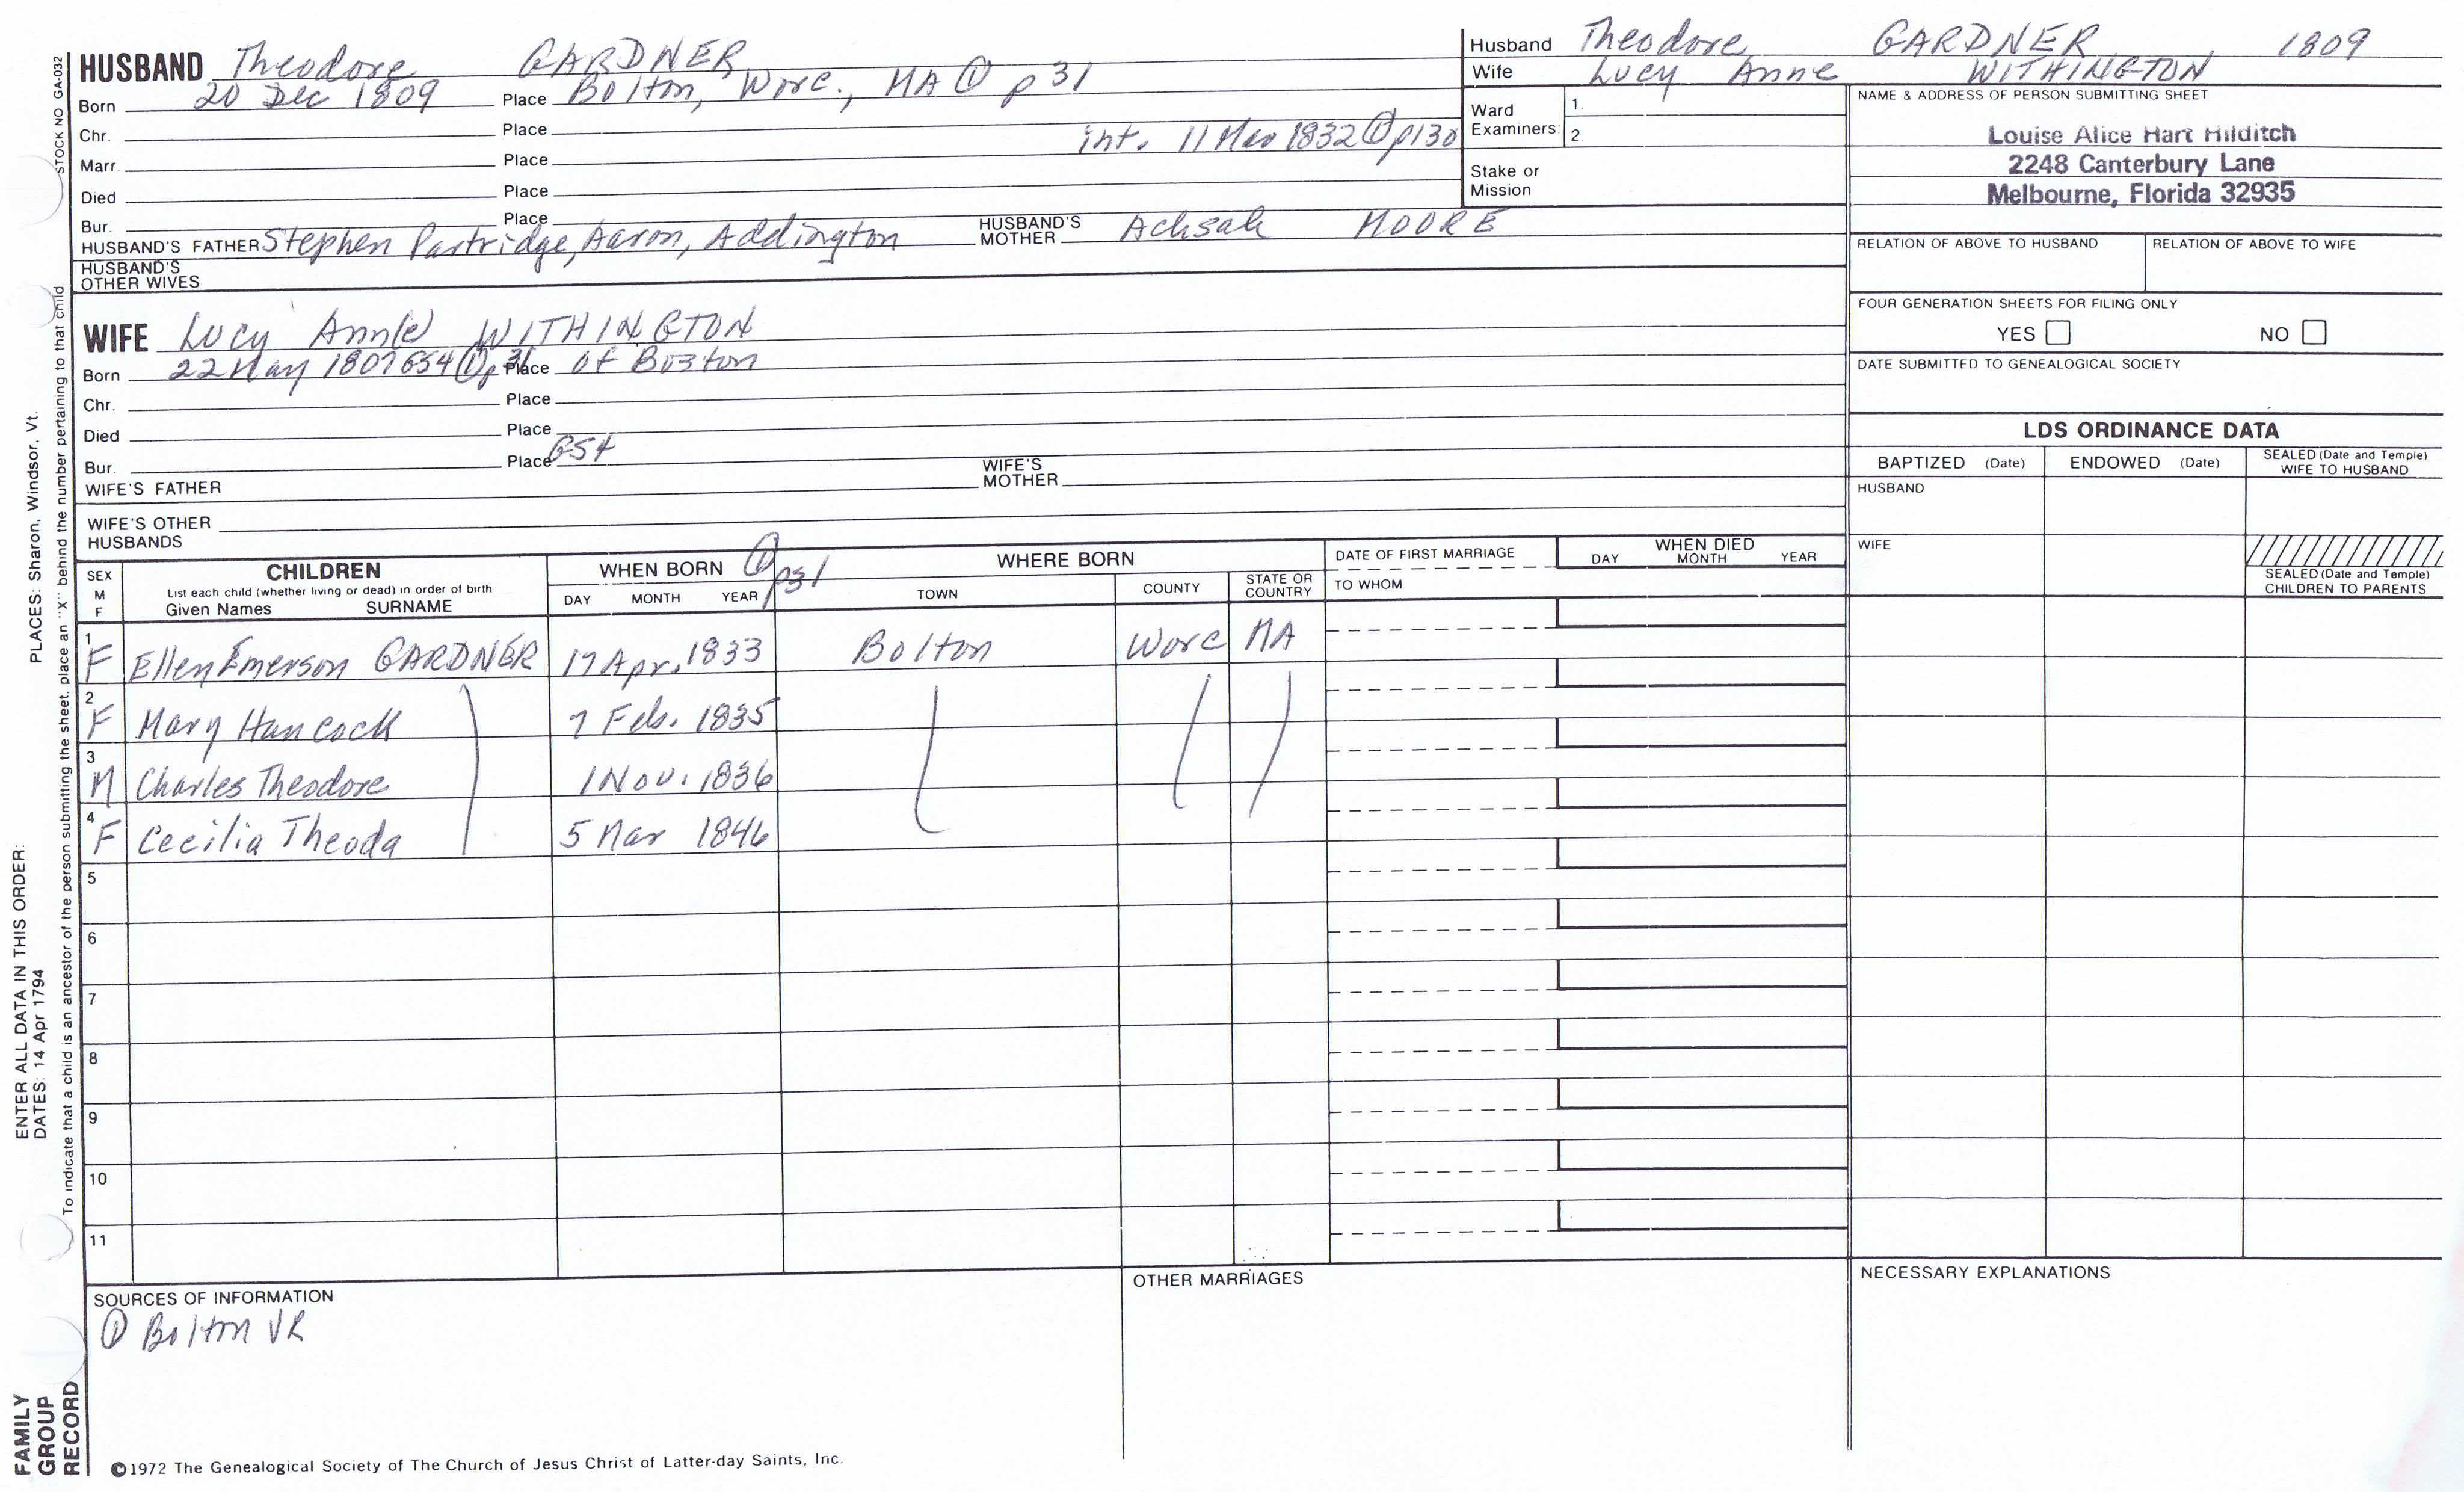 HUSBAND Theodore GARDNER
Born 20 Dec 1809 Place Bolton, Worc., MA ① p31
Chr. Place
Marr. Place int. 11 Mar 1832 ① p130
Died Place
Bur. Place
HUSBAND'S FATHER Stephen Partridge, Aaron, Addington HUSBAND'S MOTHER Achsah MOORE
HUSBAND'S OTHER WIVES
WIFE Lucy Ann(e) WITHINGTON
Born 22 May 1807 GS4 ① p 31 Place of Boston
Chr. Place
Died Place
Bur. Place GS4
WIFE'S FATHER WIFE'S MOTHER
WIFE'S OTHER HUSBANDS
Husband Theodore GARDNER, 1809
Wife Lucy Anne WITHINGTON
Ward Examiners: 1.
2.
Stake or Mission
NAME & ADDRESS OF PERSON SUBMITTING SHEET
Louise Alice Hart Hilditch
2248 Canterbury Lane
Melbourne, Florida 32935
RELATION OF ABOVE TO HUSBAND RELATION OF ABOVE TO WIFE
FOUR GENERATION SHEETS FOR FILING ONLY
YES NO
DATE SUBMITTED TO GENEALOGICAL SOCIETY
LDS ORDINANCE DATA
BAPTIZED (Date) ENDOWED (Date) SEALED (Date and Temple) WIFE TO HUSBAND
HUSBAND
WIFE
SEALED (Date and Temple) CHILDREN TO PARENTS
SEX M F CHILDREN WHEN BORN ① p31 WHERE BORN DATE OF FIRST MARRIAGE WHEN DIED
List each child (whether living or dead) in order of birth
Given Names SURNAME DAY MONTH YEAR TOWN COUNTY STATE OR COUNTRY TO WHOM DAY MONTH YEAR
1 F Ellen Emerson GARDNER 17 Apr. 1833 Bolton Worc MA
2 F Mary Hancock 7 Feb. 1835
3 M Charles Theodore 1 Nov. 1836
4 F Cecilia Theoda 5 Mar 1846
5
6
7
8
9
10
11
SOURCES OF INFORMATION
① Bolton VR
OTHER MARRIAGES
NECESSARY EXPLANATIONS
©1972 The Genealogical Society of The Church of Jesus Christ of Latter-day Saints, Inc.
STOCK NO GA-032
To indicate that a child is an ancestor of the person submitting the sheet, place an "X" behind the number pertaining to that child
ENTER ALL DATA IN THIS ORDER:
DATES: 14 Apr 1794
PLACES: Sharon, Windsor, Vt.
FAMILY
GROUP
RECORD